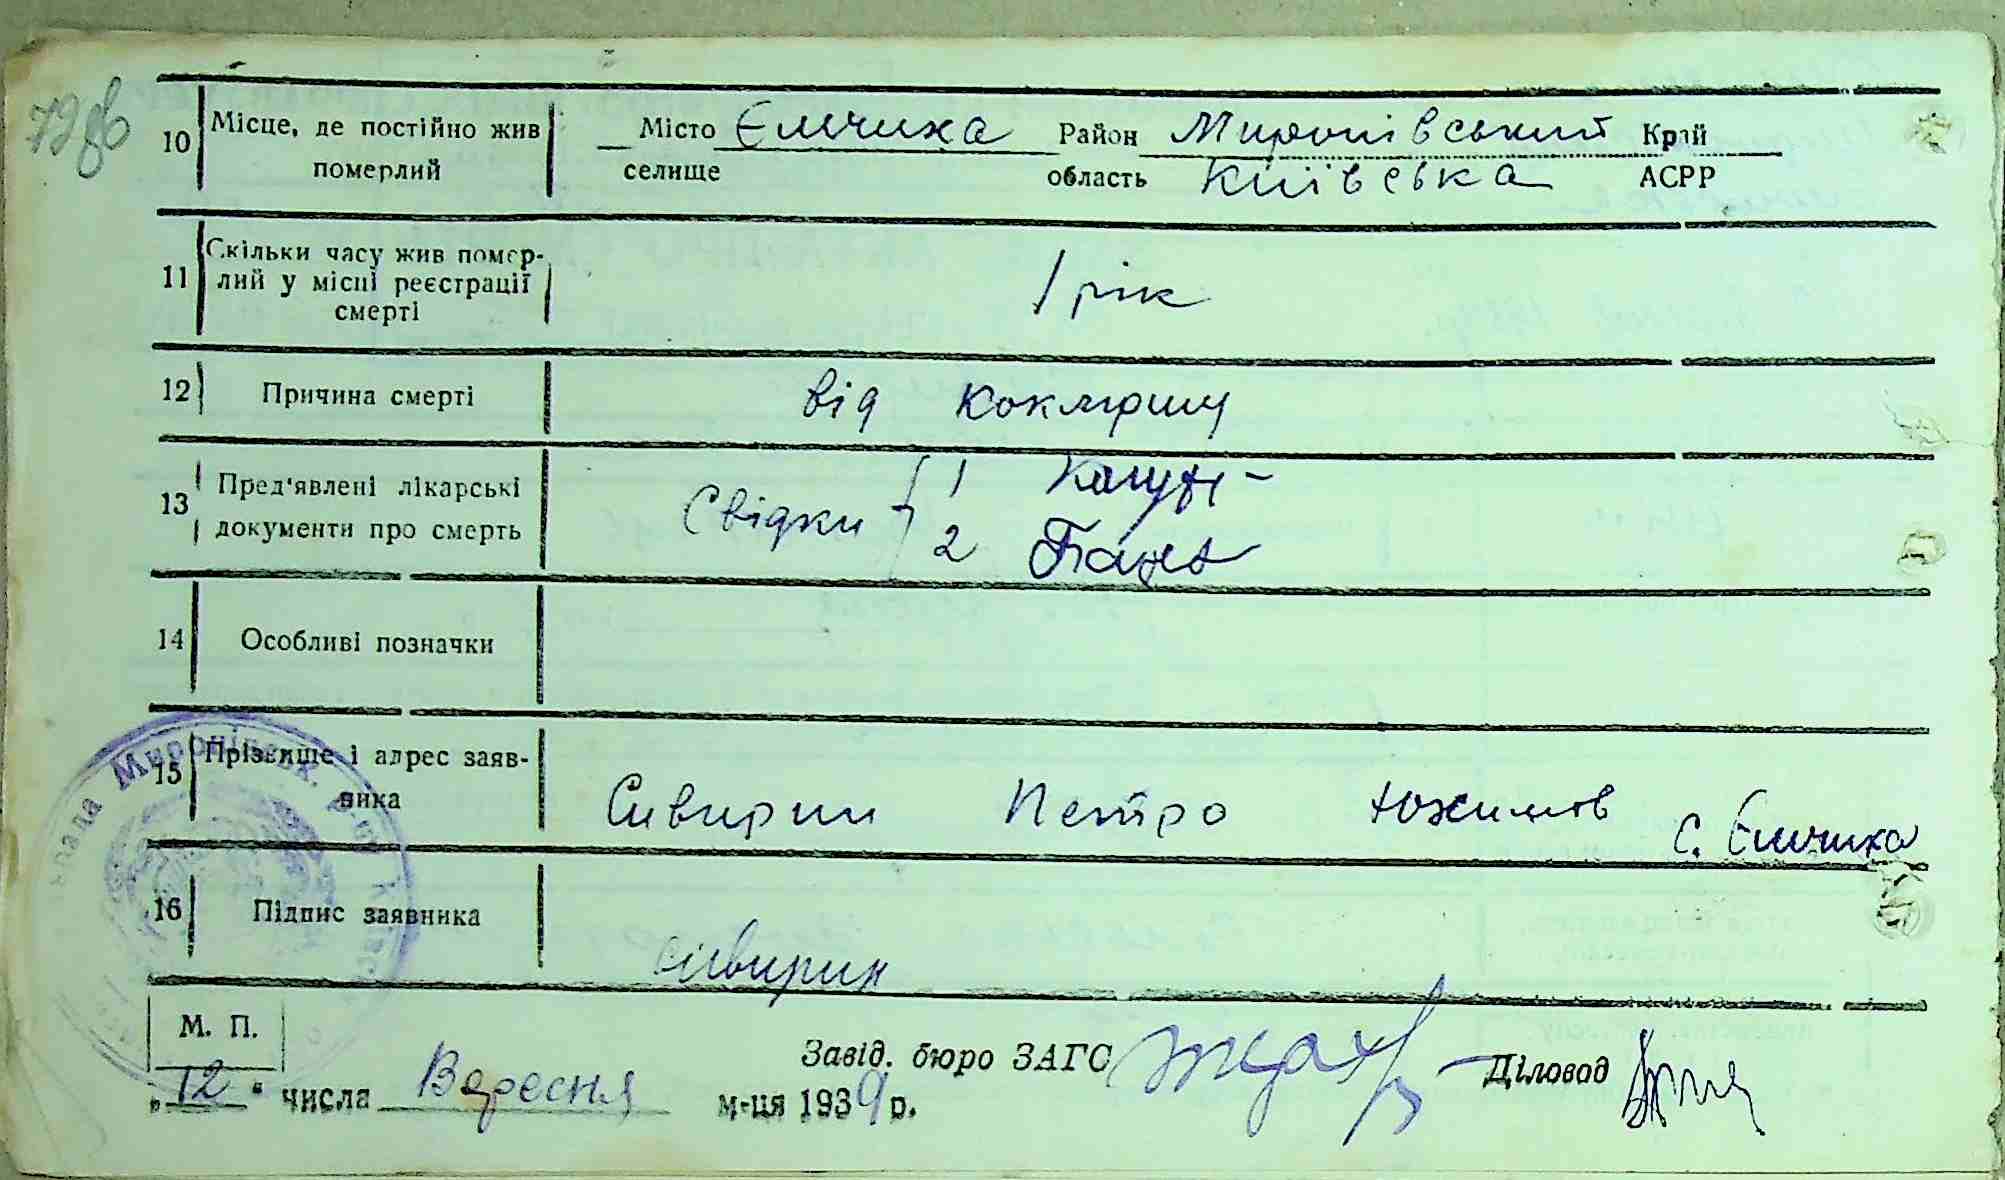 79зв
10 Місце, де постійно жив померлий Місто селище Ємчиха Район Миронівський область Київська Край АСРР
11 Скільки часу жив померлий у місці реєстрації смерті 1 рік
12 Причина смерті від коклюшу
13 Пред'явлені лікарські документи про смерть Свідки 1
2
14 Особливі позначки
15 Прізвище і адрес заявника Сивирин Петро Юхимов с. Ємчиха
16 Підпис заявника Сивирин
М. П.
Завід. бюро ЗАГС Діловод
„12“ числа Вересня м-ця 1939 р.